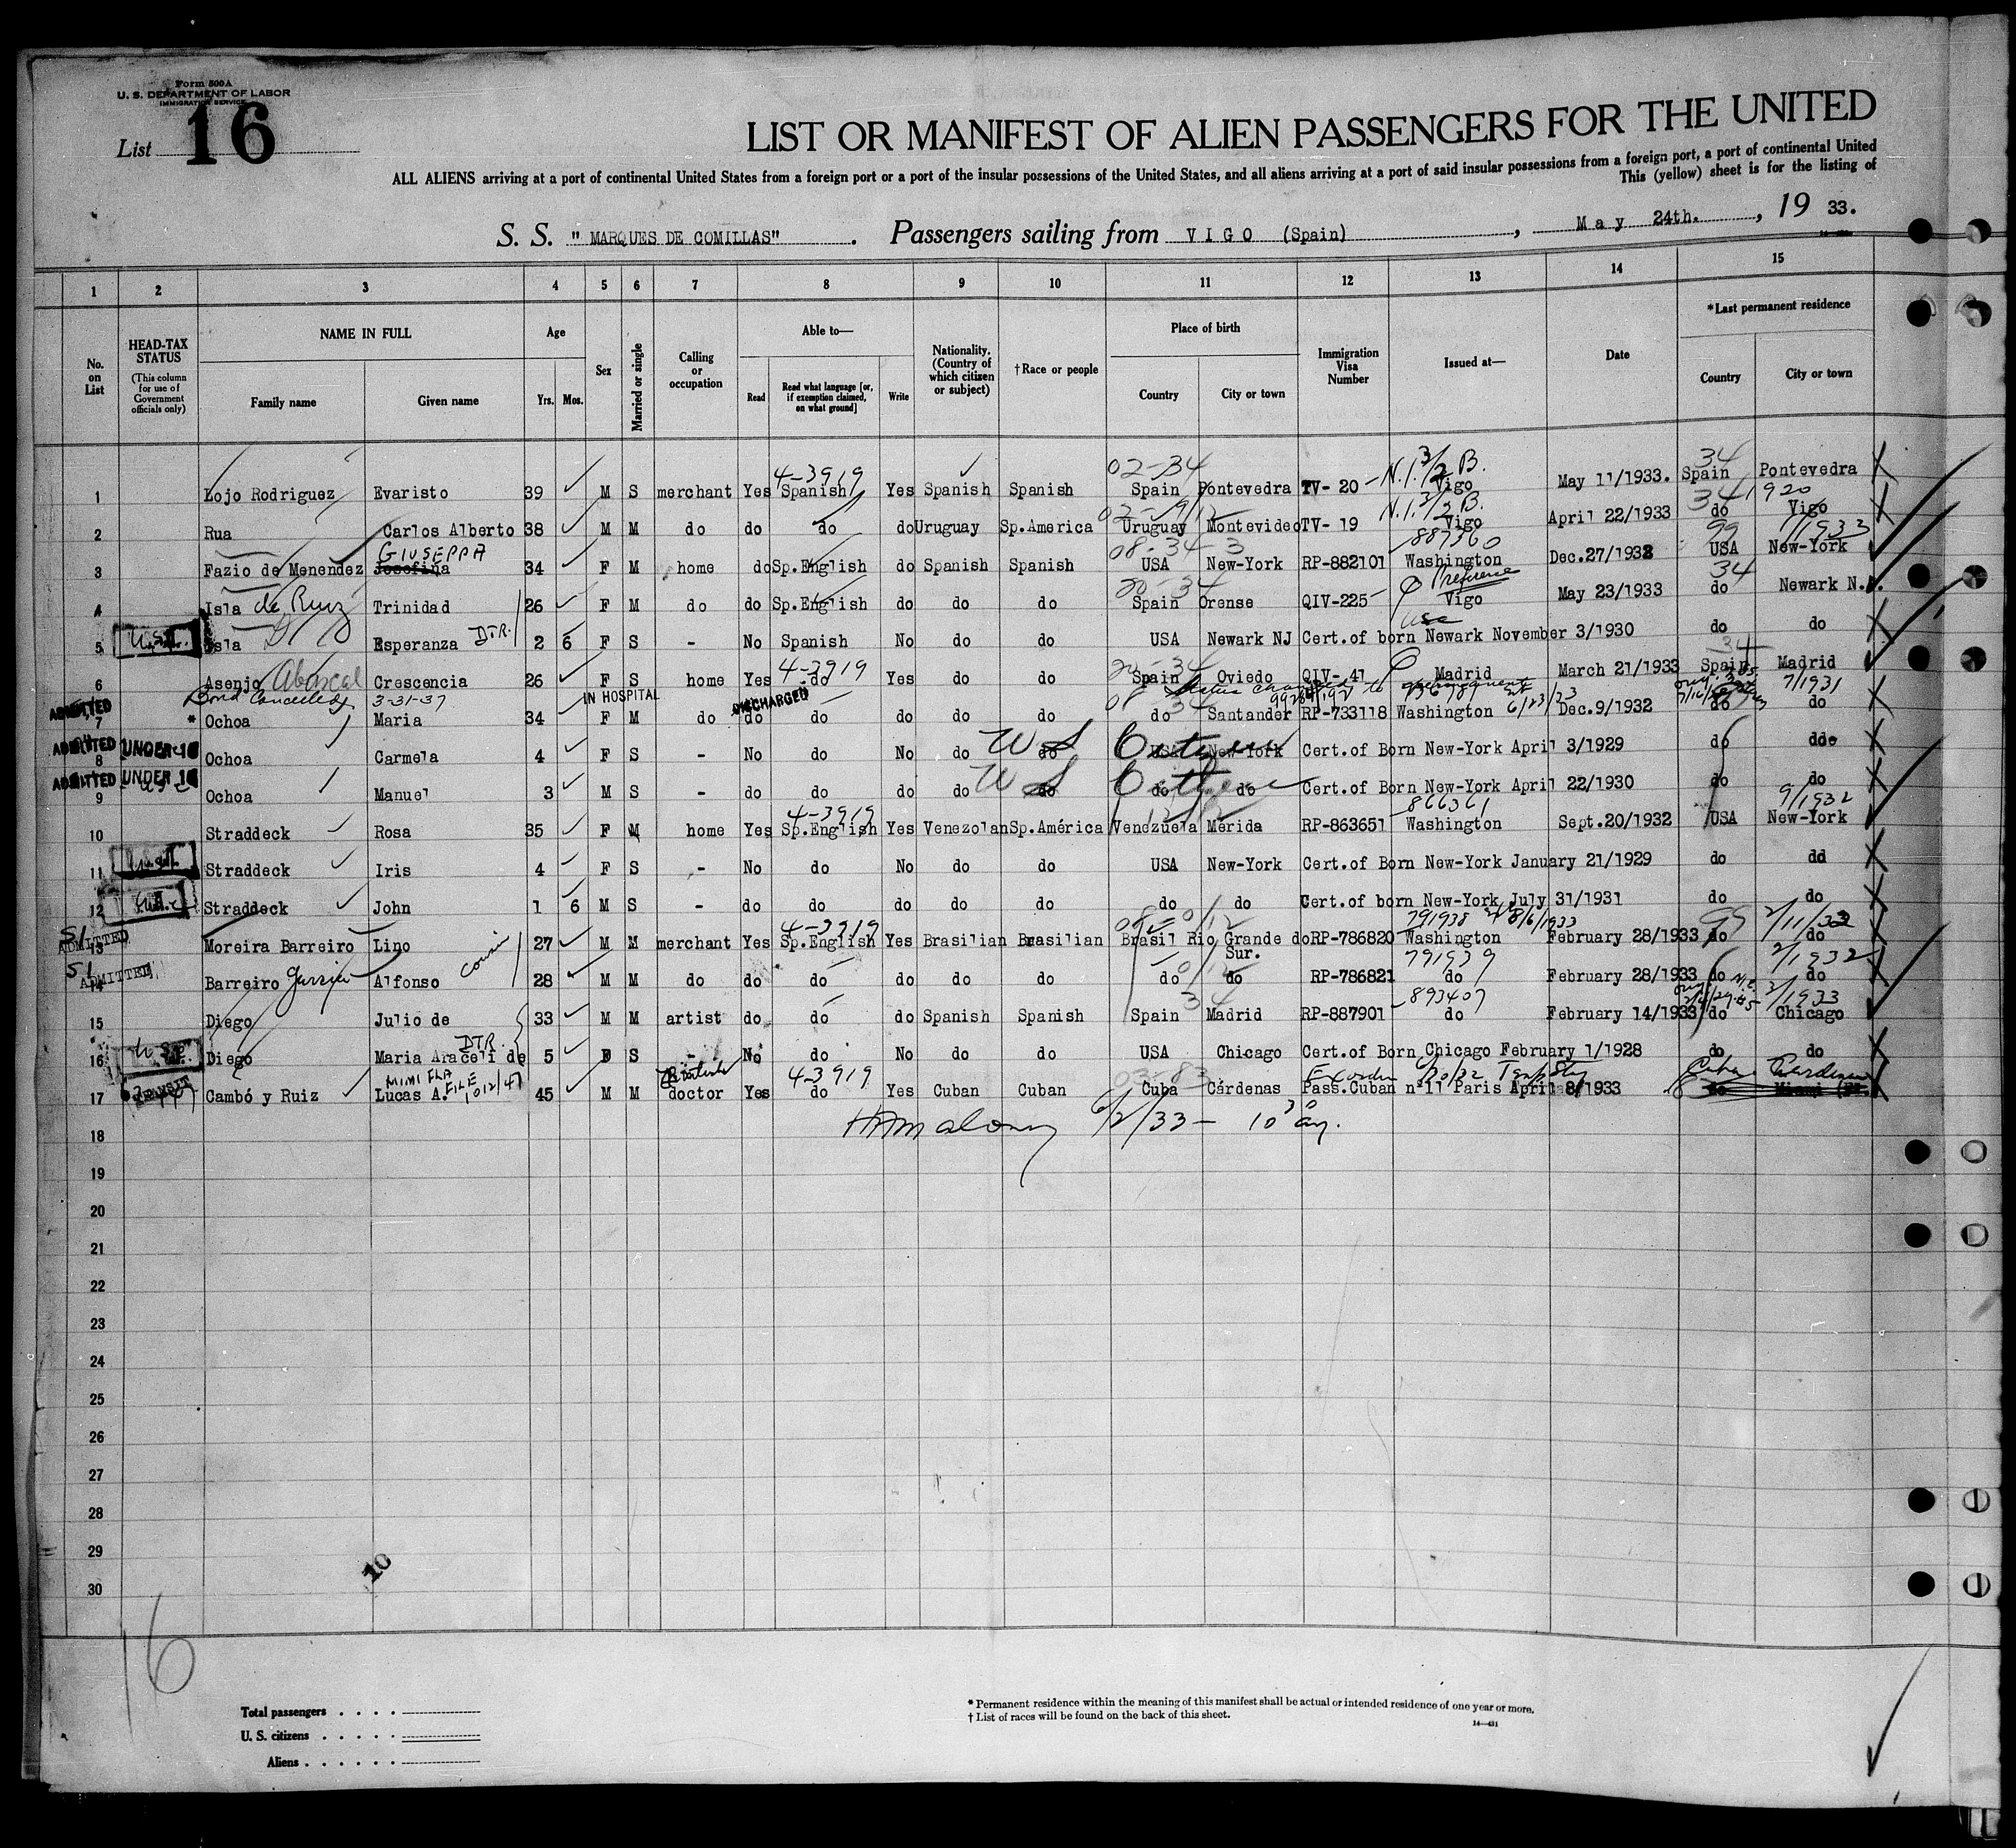 Form 500A
U. S. DEPARTMENT OF LABOR
IMMIGRATION SERVICE
List 16
LIST OR MANIFEST OF ALIEN PASSENGERS FOR THE UNITED
ALL ALIENS arriving at a port of continental United States from a foreign port or a port of the insular possessions of the United States, and all aliens arriving at a port of said insular possessions from a foreign port, a port of continental United
This (yellow) sheet is for the listing of
S. S. " MARQUES DE COMILLAS" . Passengers sailing from VIGO (Spain) , May 24th. , 19 33.
1 2 3 4 5 6 7 8 9 10 11 12 13 14 15
No. on List
HEAD-TAX STATUS
(This column for use of Government officials only)
NAME IN FULL
Family name Given name
Age
Yrs. Mos.
Sex
Married or single
Calling or occupation
Able to—
Read
Read what language [or, if exemption claimed, on what ground]
Write
Nationality. (Country of which citizen or subject)
†Race or people
Place of birth
Country City or town
Immigration Visa Number
Issued at—
Date
*Last permanent residence
Country City or town
4-3919 02-34 N.I. 3/2 B. 34
1 Lojo Rodriguez Evaristo 39 M S merchant Yes Spanish Yes Spanish Spanish Spain Pontevedra TV- 20 Vigo May 11/1933. Spain Pontevedra
N.I. 3/2 B. 34 1920
2 Rua Carlos Alberto 38 M M do do do do Uruguay Sp.America Uruguay Montevideo TV- 19 Vigo April 22/1933 do Vigo
GIUSEPPA 08-34 3 887360 99 1/1933
3 Fazio de Menendez Josefina 34 F M home do Sp.English do Spanish Spanish USA New-York RP-882101 Washington Dec.27/1932 USA New-York
Preference 34
4 Isla de Ruiz Trinidad 26 F M do do Sp.English do do do Spain Orense QIV-225 Vigo May 23/1933 do Newark N.J.
USA
5 Isla Esperanza DTR. 2 6 F S - No Spanish No do do USA Newark NJ Cert.of born Newark November 3/1930 do do
4-3919 34
6 Asenjo Abascal Crescencia 26 F S home Yes do Yes do do Spain Oviedo QIV- 41 Madrid March 21/1933 Spain Madrid
ADMITTED Bond Cancelled 3-31-37 IN HOSPITAL DISCHARGED 6/23/33 7/1931
7 * Ochoa Maria 34 F M do do do do do do do Santander RP-733118 Washington Dec.9/1932 do do
ADMITTED UNDER 16 US Citizen
8 Ochoa Carmela 4 F S - No do No do do USA New-York Cert.of Born New-York April 3/1929 do do
ADMITTED UNDER 16 US Citizen
9 Ochoa Manuel 3 M S - do do do do do do do Cert.of Born New-York April 22/1930 do do
4-3919 866361 9/1932
10 Straddeck Rosa 35 F M home Yes Sp.English Yes Venezolan Sp.América Venezuela Merida RP-863651 Washington Sept.20/1932 USA New-York
11 Straddeck Iris 4 F S - No do No do do USA New-York Cert.of Born New-York January 21/1929 do dd
12 Straddeck John 1 6 M S - do do do do do do do Cert.of born New-York July 31/1931 do do
4-3919 791938 8/6/1933 99
SI ADMITTED
13 Moreira Barreiro Lino 27 M M merchant Yes Sp.English Yes Brasilian Brasilian Brasil Rio Grande do Sur. RP-786820 Washington February 28/1933 do do
SI ADMITTED cousin 791939 2/1932
14 Barreiro Alfonso 28 M M do do do do do do do do RP-786821 do February 28/1933 do do
34 893407 2/1933
15 Diego Julio de 33 M M artist do do do Spanish Spanish Spain Madrid RP-887901 do February 14/1933 do Chicago
DTR.
16 Diego Maria Araceli de 5 F S - No do No do do USA Chicago Cert.of Born Chicago February 1/1928 do do
TRANSIT MIMI FLA FILE 1012/47 Dentist 4-3919 03-83
17 Cambó y Ruiz Lucas A. 45 M M doctor Yes do Yes Cuban Cuban Cuba Cárdenas Pass.Cuban nº11 Paris April 8/1933 Cuba Cardenas
6/2/33 -
18
19
20
21
22
23
24
25
26
27
28
29
30
10
16
Total passengers . . . .
U. S. citizens . . . . .
Aliens . . . . . .
* Permanent residence within the meaning of this manifest shall be actual or intended residence of one year or more.
† List of races will be found on the back of this sheet.
14—431